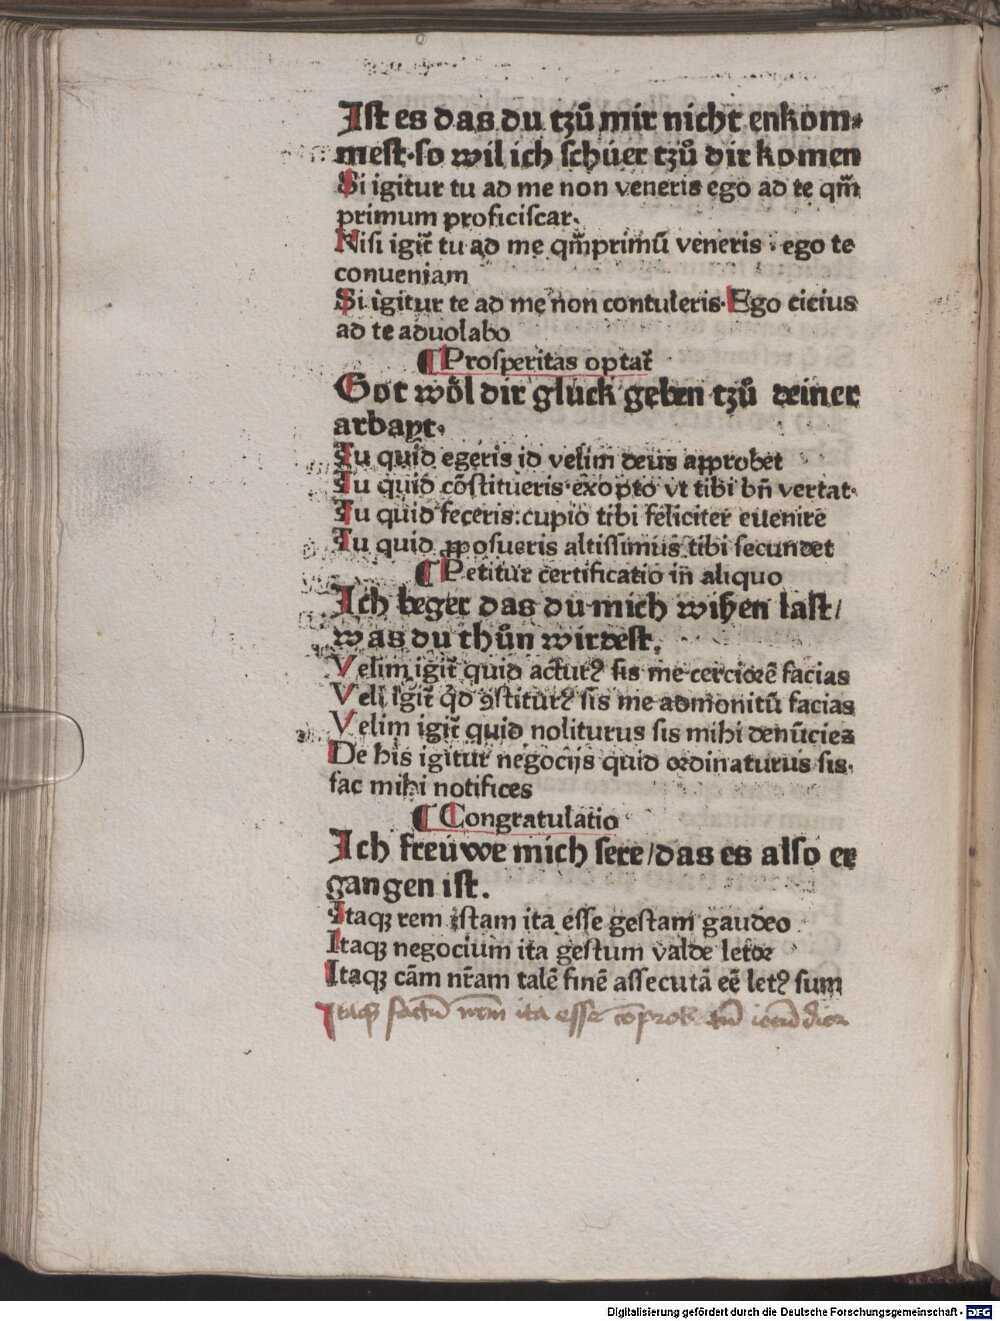 Ist es das du tzů mir nicht enkom⸗
mest·so wil ich schúer tzů dir komen
Si igitur tu ad me non veneris ego ad te qm̃
primum proficiscar.
Nisi igit̃ tu ad me qm̃primũ veneris · ego te
conueniam
Si igitur te ad me non contuleris·Ego cicius
ad te aduolabo
¶ Prosperitas optat̃
Got wöl dir gluck geben tzů deiner
arbayt·
Tu quid egeris id velim deus approbet
Tu quid cõstitueris·exopto vt tibi bñ vertat·
Tu quid feceris:cupio tibi feliciter euenire
Tu quid ꝓposueris altissimus tibi secundet
¶ Petitur certificatio in aliquo
Ich beger das du mich wißen last/
was du thůn wirdest.
Velim igit̃ quid actur⁹ sis me cerciorẽ facias
Veli igit̃ q̇d ꝯstitur⁹ sis me admonitũ facias
Velim igit̃ quid noliturus sis mihi denũciez
De his igitur negocijs quid ordinaturus sis·
fac mihi notifices
¶ Congratulatio
Ich freúwe mich sere/das es also er
gangen ist.
Itaqꝫ rem istam ita esse gestam gaudeo
Itaqꝫ negocium ita gestum valde letor
Itaqꝫ cãm nr̃am talẽ finẽ assecutã eẽ let⁹ sum
Itaqꝫ factũ ita esse
Digitalisierung gefördert durch die Deutsche Forschungsgemeinschaft - DFG